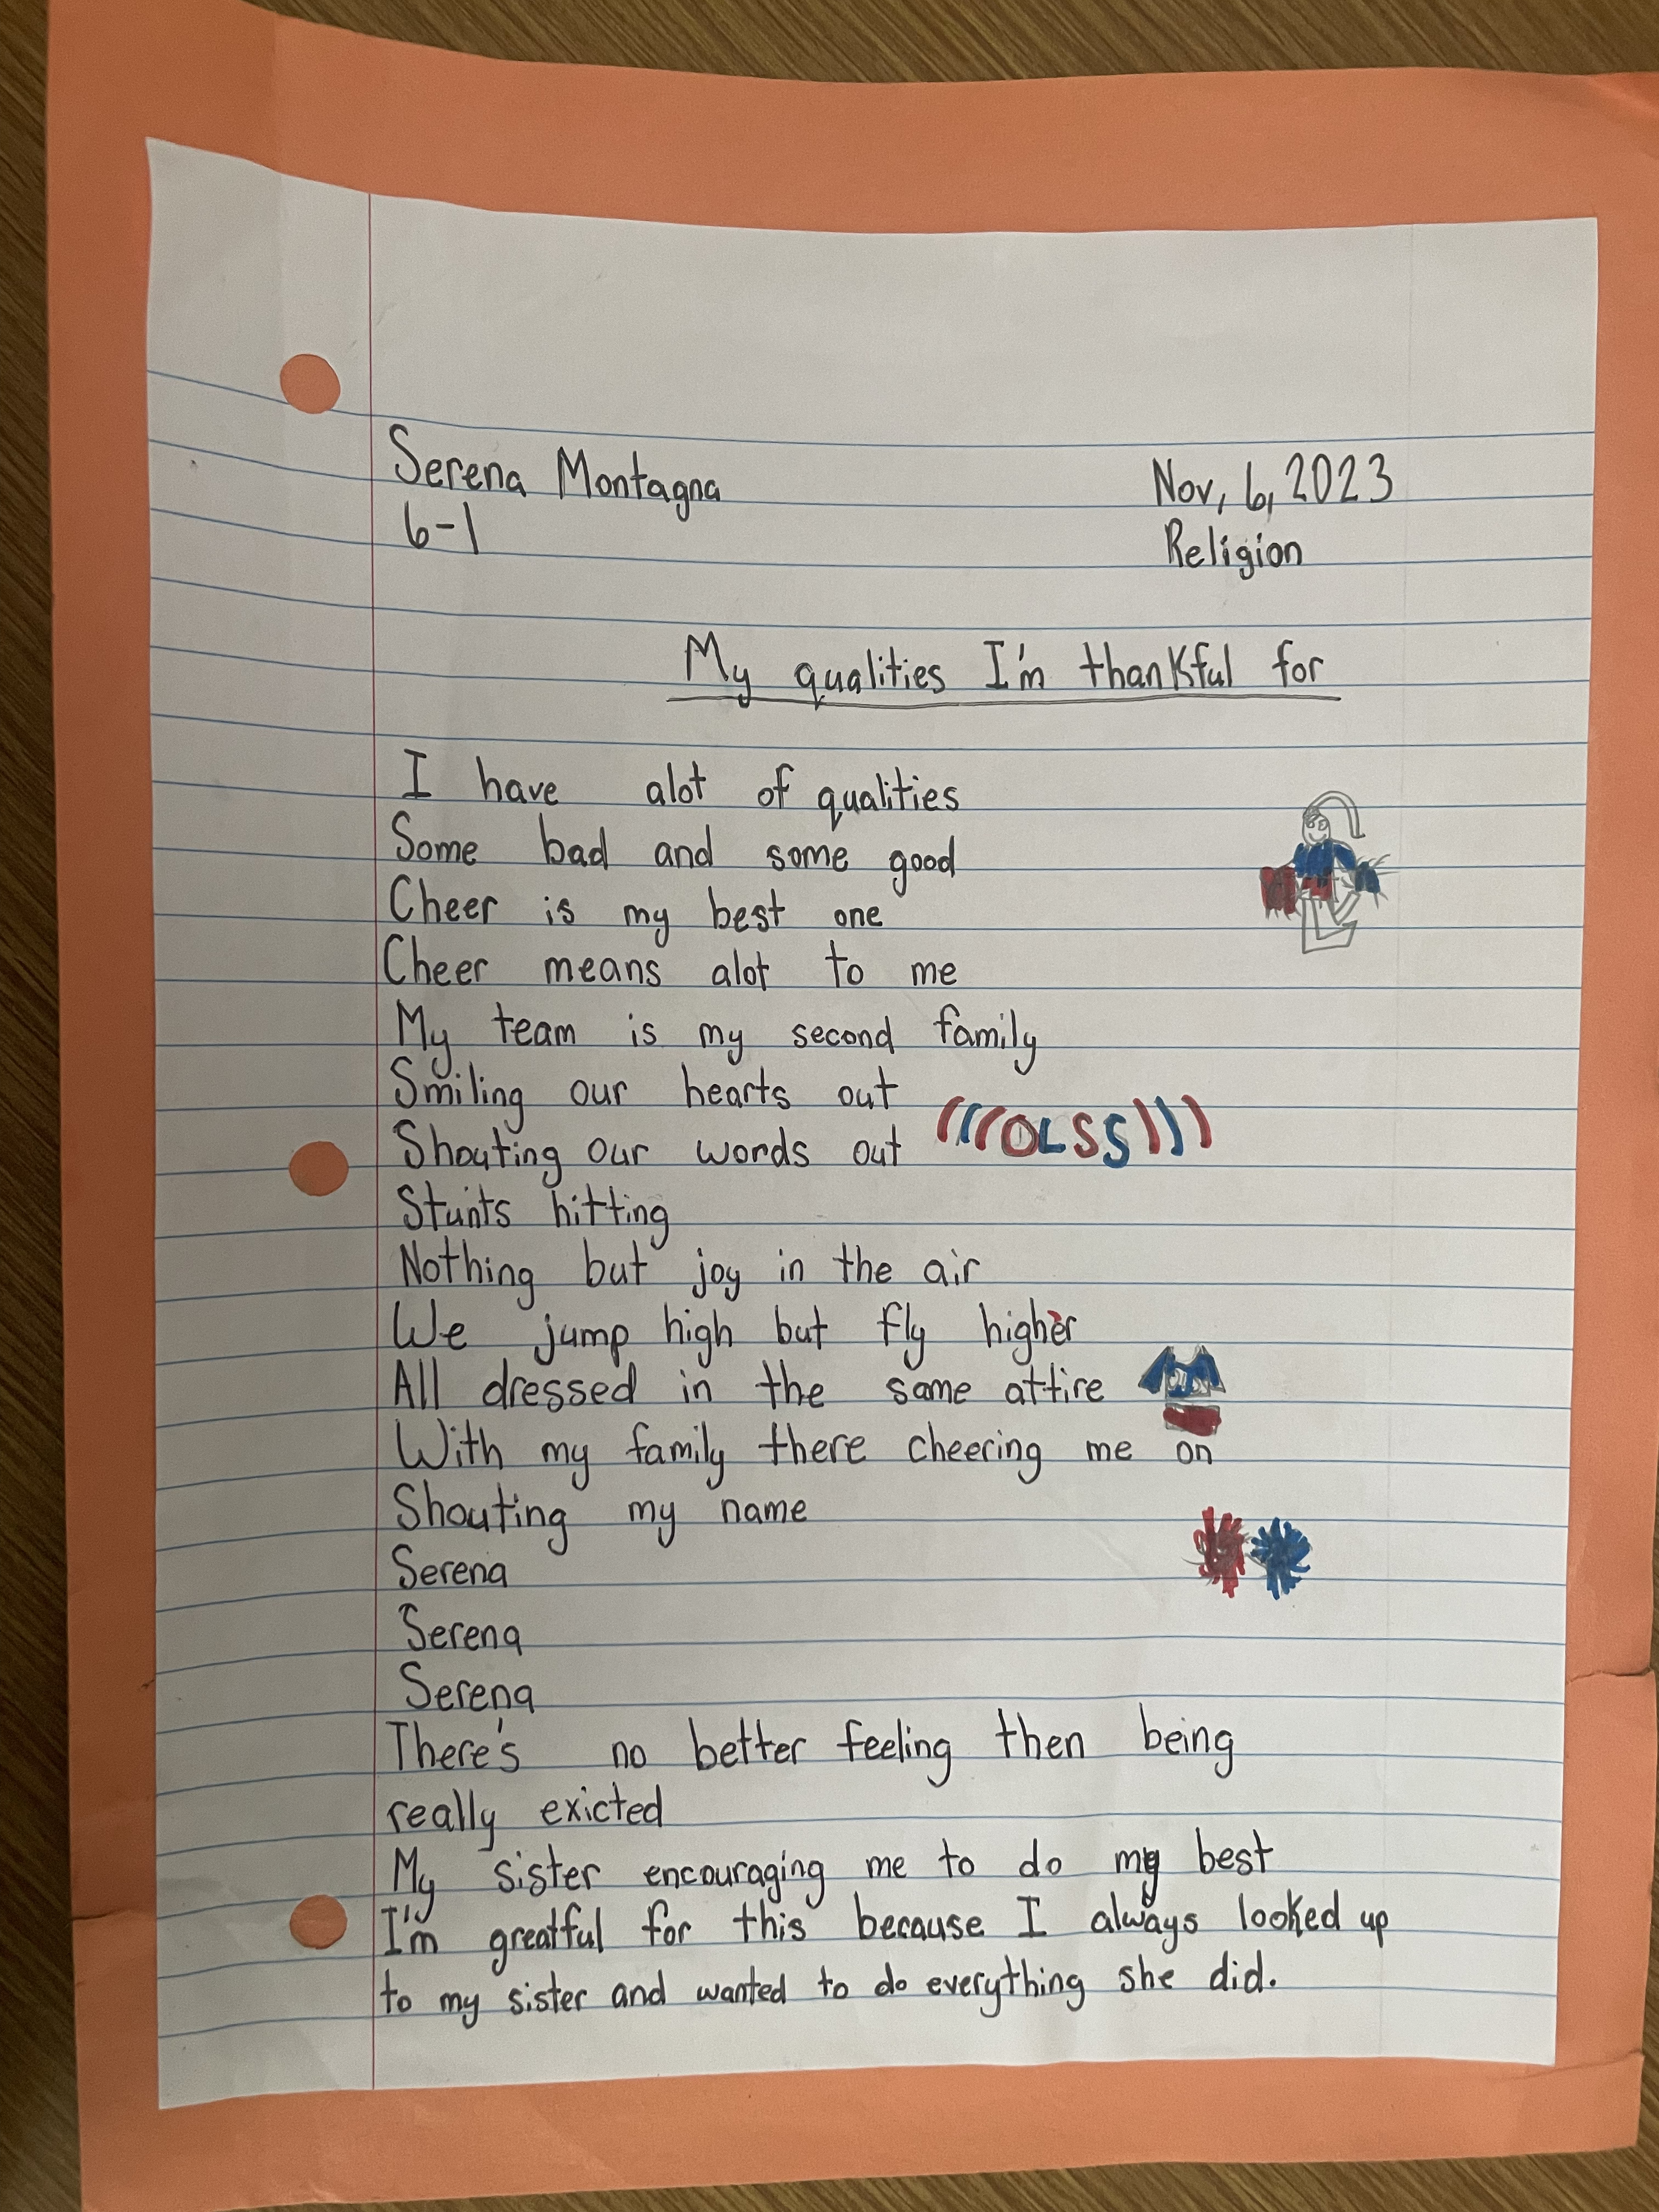 Serena Montagna Nov, 6, 2023
6-1 Religion
My qualities I'm thankful for
I have alot of qualities
Some bad and some good
Cheer is my best one
Cheer means alot to me
My team is my second family
Smiling our hearts out
Shouting our words out (((OLSS)))
Stunts hitting
Nothing but joy in the air
We jump high but fly higher
All dressed in the same attire
With my family there cheering me on
Shouting my name
Serena
Serena
Serena
There's no better feeling then being
really exicted
My sister encouraging me to do my best
I'm greatful for this because I always looked up
to my sister and wanted to do everything she did.